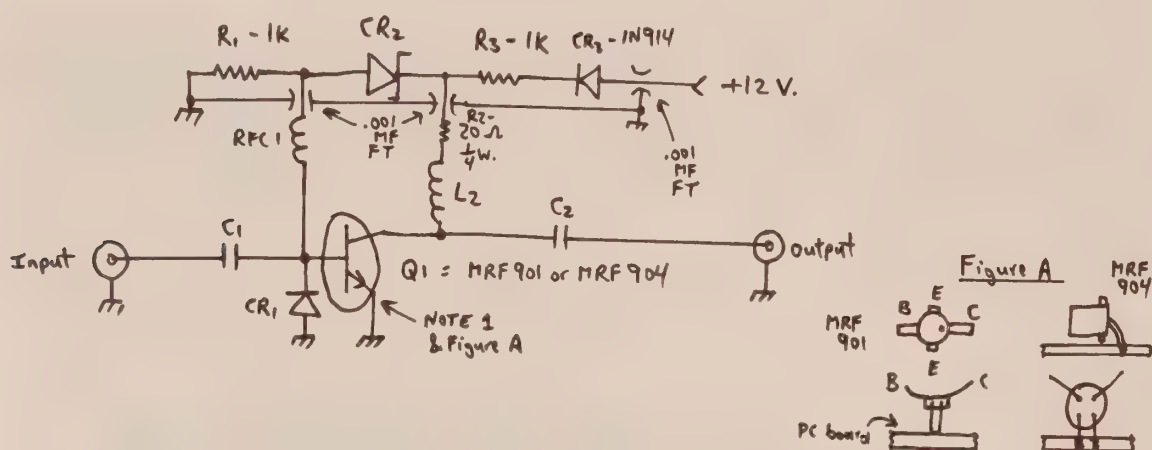 R₁ - 1K
CR₂
R₃ - 1K
CR₃ - 1N914
+12 V.
RFC1
.001
MF
FT
R2-
20 Ω
1/4 W.
.001
MF
FT
L2
C₁
C₂
Input
Output
Q1 = MRF901 or MRF904
CR₁
NOTE 1
& Figure A
Figure A
MRF
901
B
E
C
E
MRF
904
B
C
PC board